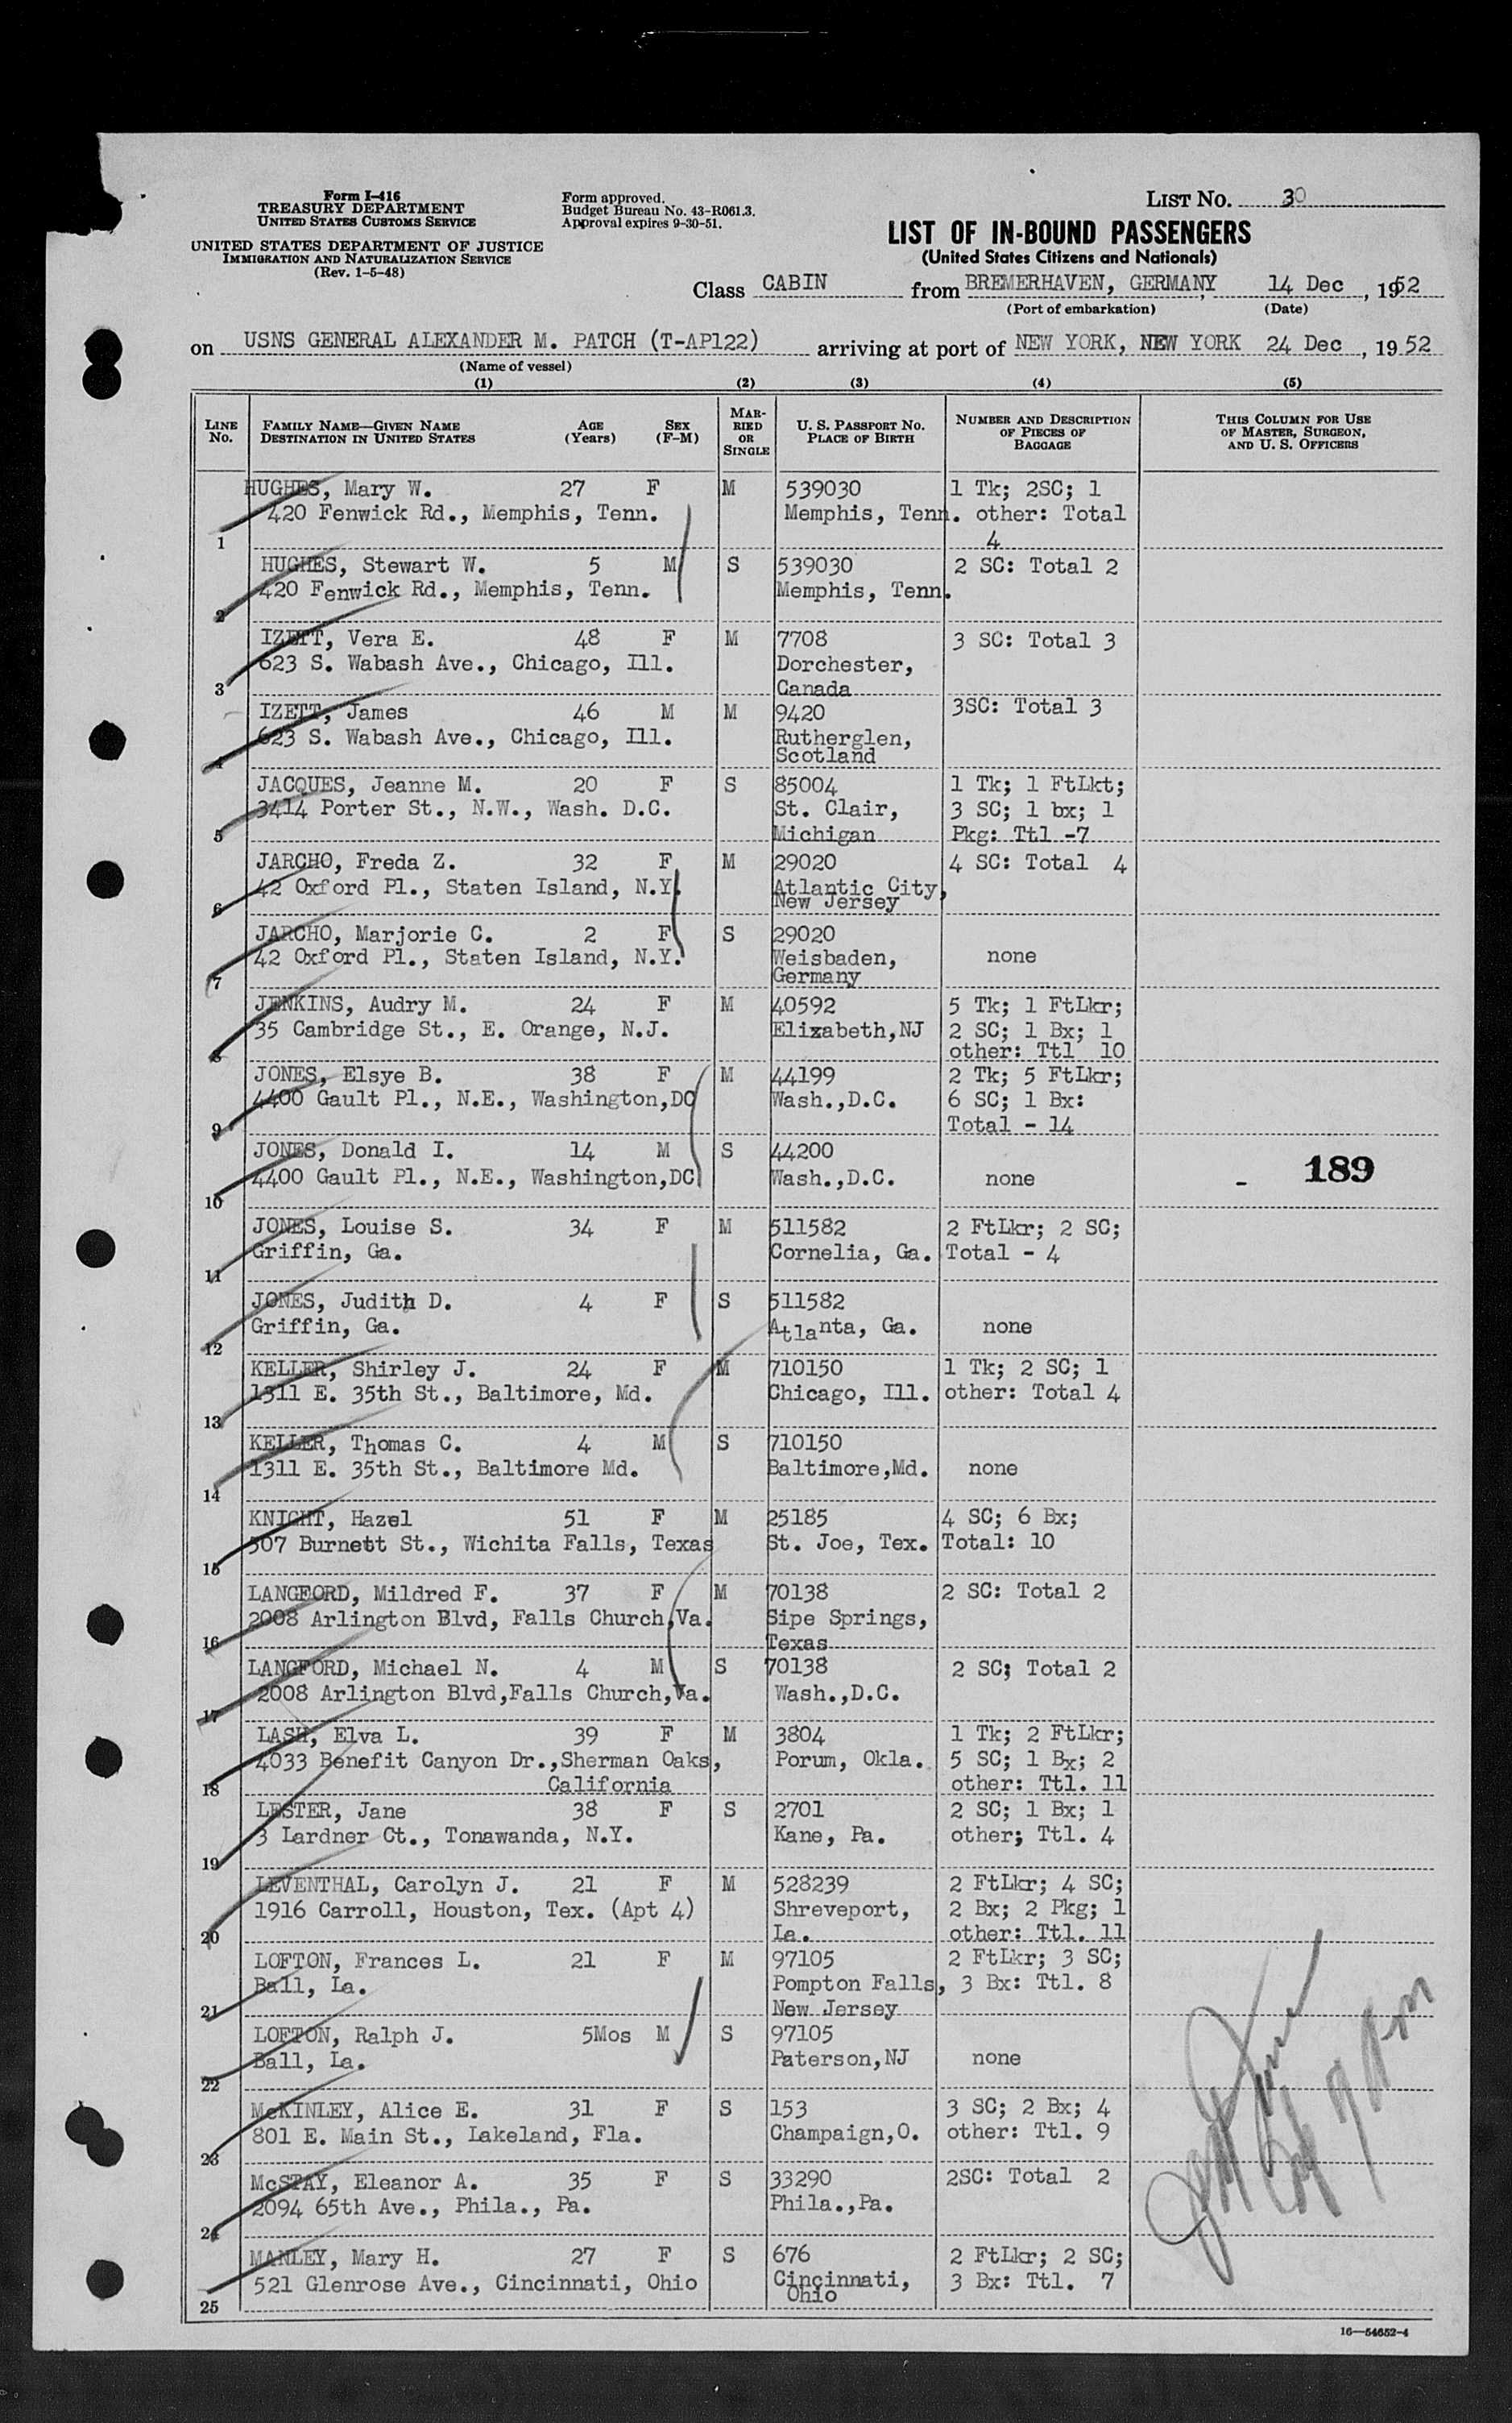 Form I-416
TREASURY DEPARTMENT
UNITED STATES CUSTOMS SERVICE
UNITED STATES DEPARTMENT OF JUSTICE
IMMIGRATION AND NATURALIZATION SERVICE
(Rev. 1-5-48)
Form approved.
Budget Bureau No. 43-R061.3.
Approval expires 9-30-51.
LIST NO. 30
LIST OF IN-BOUND PASSENGERS
(United States Citizens and Nationals)
Class CABIN from BREMERHAVEN, GERMANY, 14 Dec, 1952
(Port of embarkation) (Date)
on USNS GENERAL ALEXANDER M. PATCH (T-AP122) arriving at port of NEW YORK, NEW YORK 24 Dec, 1952
(Name of vessel)
(1) (2) (3) (4) (5)
LINE NO. FAMILY NAME—GIVEN NAME DESTINATION IN UNITED STATES AGE (Years) SEX (F-M) MARRIED OR SINGLE U. S. PASSPORT NO. PLACE OF BIRTH NUMBER AND DESCRIPTION OF PIECES OF BAGGAGE THIS COLUMN FOR USE OF MASTER, SURGEON, AND U. S. OFFICERS
HUGHES, Mary W. 27 F M 539030 1 Tk; 2SC; 1
420 Fenwick Rd., Memphis, Tenn. Memphis, Tenn. other: Total
1 4
HUGHES, Stewart W. 5 M S 539030 2 SC: Total 2
420 Fenwick Rd., Memphis, Tenn. Memphis, Tenn.
2
IZETT, Vera E. 48 F M 7708 3 SC: Total 3
623 S. Wabash Ave., Chicago, Ill. Dorchester,
3 Canada
IZETT, James 46 M M 9420 3SC: Total 3
623 S. Wabash Ave., Chicago, Ill. Rutherglen,
4 Scotland
JACQUES, Jeanne M. 20 F S 85004 1 Tk; 1 FtLkt;
3414 Porter St., N.W., Wash. D.C. St. Clair, 3 SC; 1 bx; 1
5 Michigan Pkg: Ttl -7
JARCHO, Freda Z. 32 F M 29020 4 SC: Total 4
42 Oxford Pl., Staten Island, N.Y. Atlantic City,
6 New Jersey
JARCHO, Marjorie C. 2 F S 29020
42 Oxford Pl., Staten Island, N.Y. Weisbaden, none
7 Germany
JENKINS, Audry M. 24 F M 40592 5 Tk; 1 FtLkr;
35 Cambridge St., E. Orange, N.J. Elizabeth,NJ 2 SC; 1 Bx; 1
8 other: Ttl 10
JONES, Elsye B. 38 F M 44199 2 Tk; 5 FtLkr;
4400 Gault Pl., N.E., Washington,DC Wash.,D.C. 6 SC; 1 Bx:
9 Total - 14
JONES, Donald I. 14 M S 44200
4400 Gault Pl., N.E., Washington,DC Wash.,D.C. none - 189
10
JONES, Louise S. 34 F M 511582 2 FtLkr; 2 SC;
Griffin, Ga. Cornelia, Ga. Total - 4
11
JONES, Judith D. 4 F S 511582
Griffin, Ga. Atlanta, Ga. none
12
KELLER, Shirley J. 24 F M 710150 1 Tk; 2 SC; 1
1311 E. 35th St., Baltimore, Md. Chicago, Ill. other: Total 4
13
KELLER, Thomas C. 4 M S 710150
1311 E. 35th St., Baltimore Md. Baltimore,Md. none
14
KNIGHT, Hazel 51 F M 25185 4 SC; 6 Bx;
307 Burnett St., Wichita Falls, Texas St. Joe, Tex. Total: 10
15
LANGFORD, Mildred F. 37 F M 70138 2 SC: Total 2
2008 Arlington Blvd, Falls Church,Va. Sipe Springs,
16 Texas
LANGFORD, Michael N. 4 M S 70138 2 SC; Total 2
2008 Arlington Blvd,Falls Church,Va. Wash.,D.C.
17
LASH, Elva L. 39 F M 3804 1 Tk; 2 FtLkr;
4033 Benefit Canyon Dr.,Sherman Oaks, Porum, Okla. 5 SC; 1 Bx; 2
18 California other: Ttl. 11
LESTER, Jane 38 F S 2701 2 SC; 1 Bx; 1
3 Lardner Ct., Tonawanda, N.Y. Kane, Pa. other; Ttl. 4
19
LEVENTHAL, Carolyn J. 21 F M 528239 2 FtLkr; 4 SC;
1916 Carroll, Houston, Tex. (Apt 4) Shreveport, 2 Bx; 2 Pkg; 1
20 La. other: Ttl. 11
LOFTON, Frances L. 21 F M 97105 2 FtLkr; 3 SC;
Ball, La. Pompton Falls, 3 Bx: Ttl. 8
21 New Jersey
LOFTON, Ralph J. 5Mos M S 97105
Ball, La. Paterson,NJ none
22
McKINLEY, Alice E. 31 F S 153 3 SC; 2 Bx; 4
801 E. Main St., Lakeland, Fla. Champaign,O. other: Ttl. 9
23
McSTAY, Eleanor A. 35 F S 33290 2SC: Total 2
2094 65th Ave., Phila., Pa. Phila.,Pa.
24
MANLEY, Mary H. 27 F S 676 2 FtLkr; 2 SC;
521 Glenrose Ave., Cincinnati, Ohio Cincinnati, 3 Bx: Ttl. 7
25 Ohio
16—54652-4